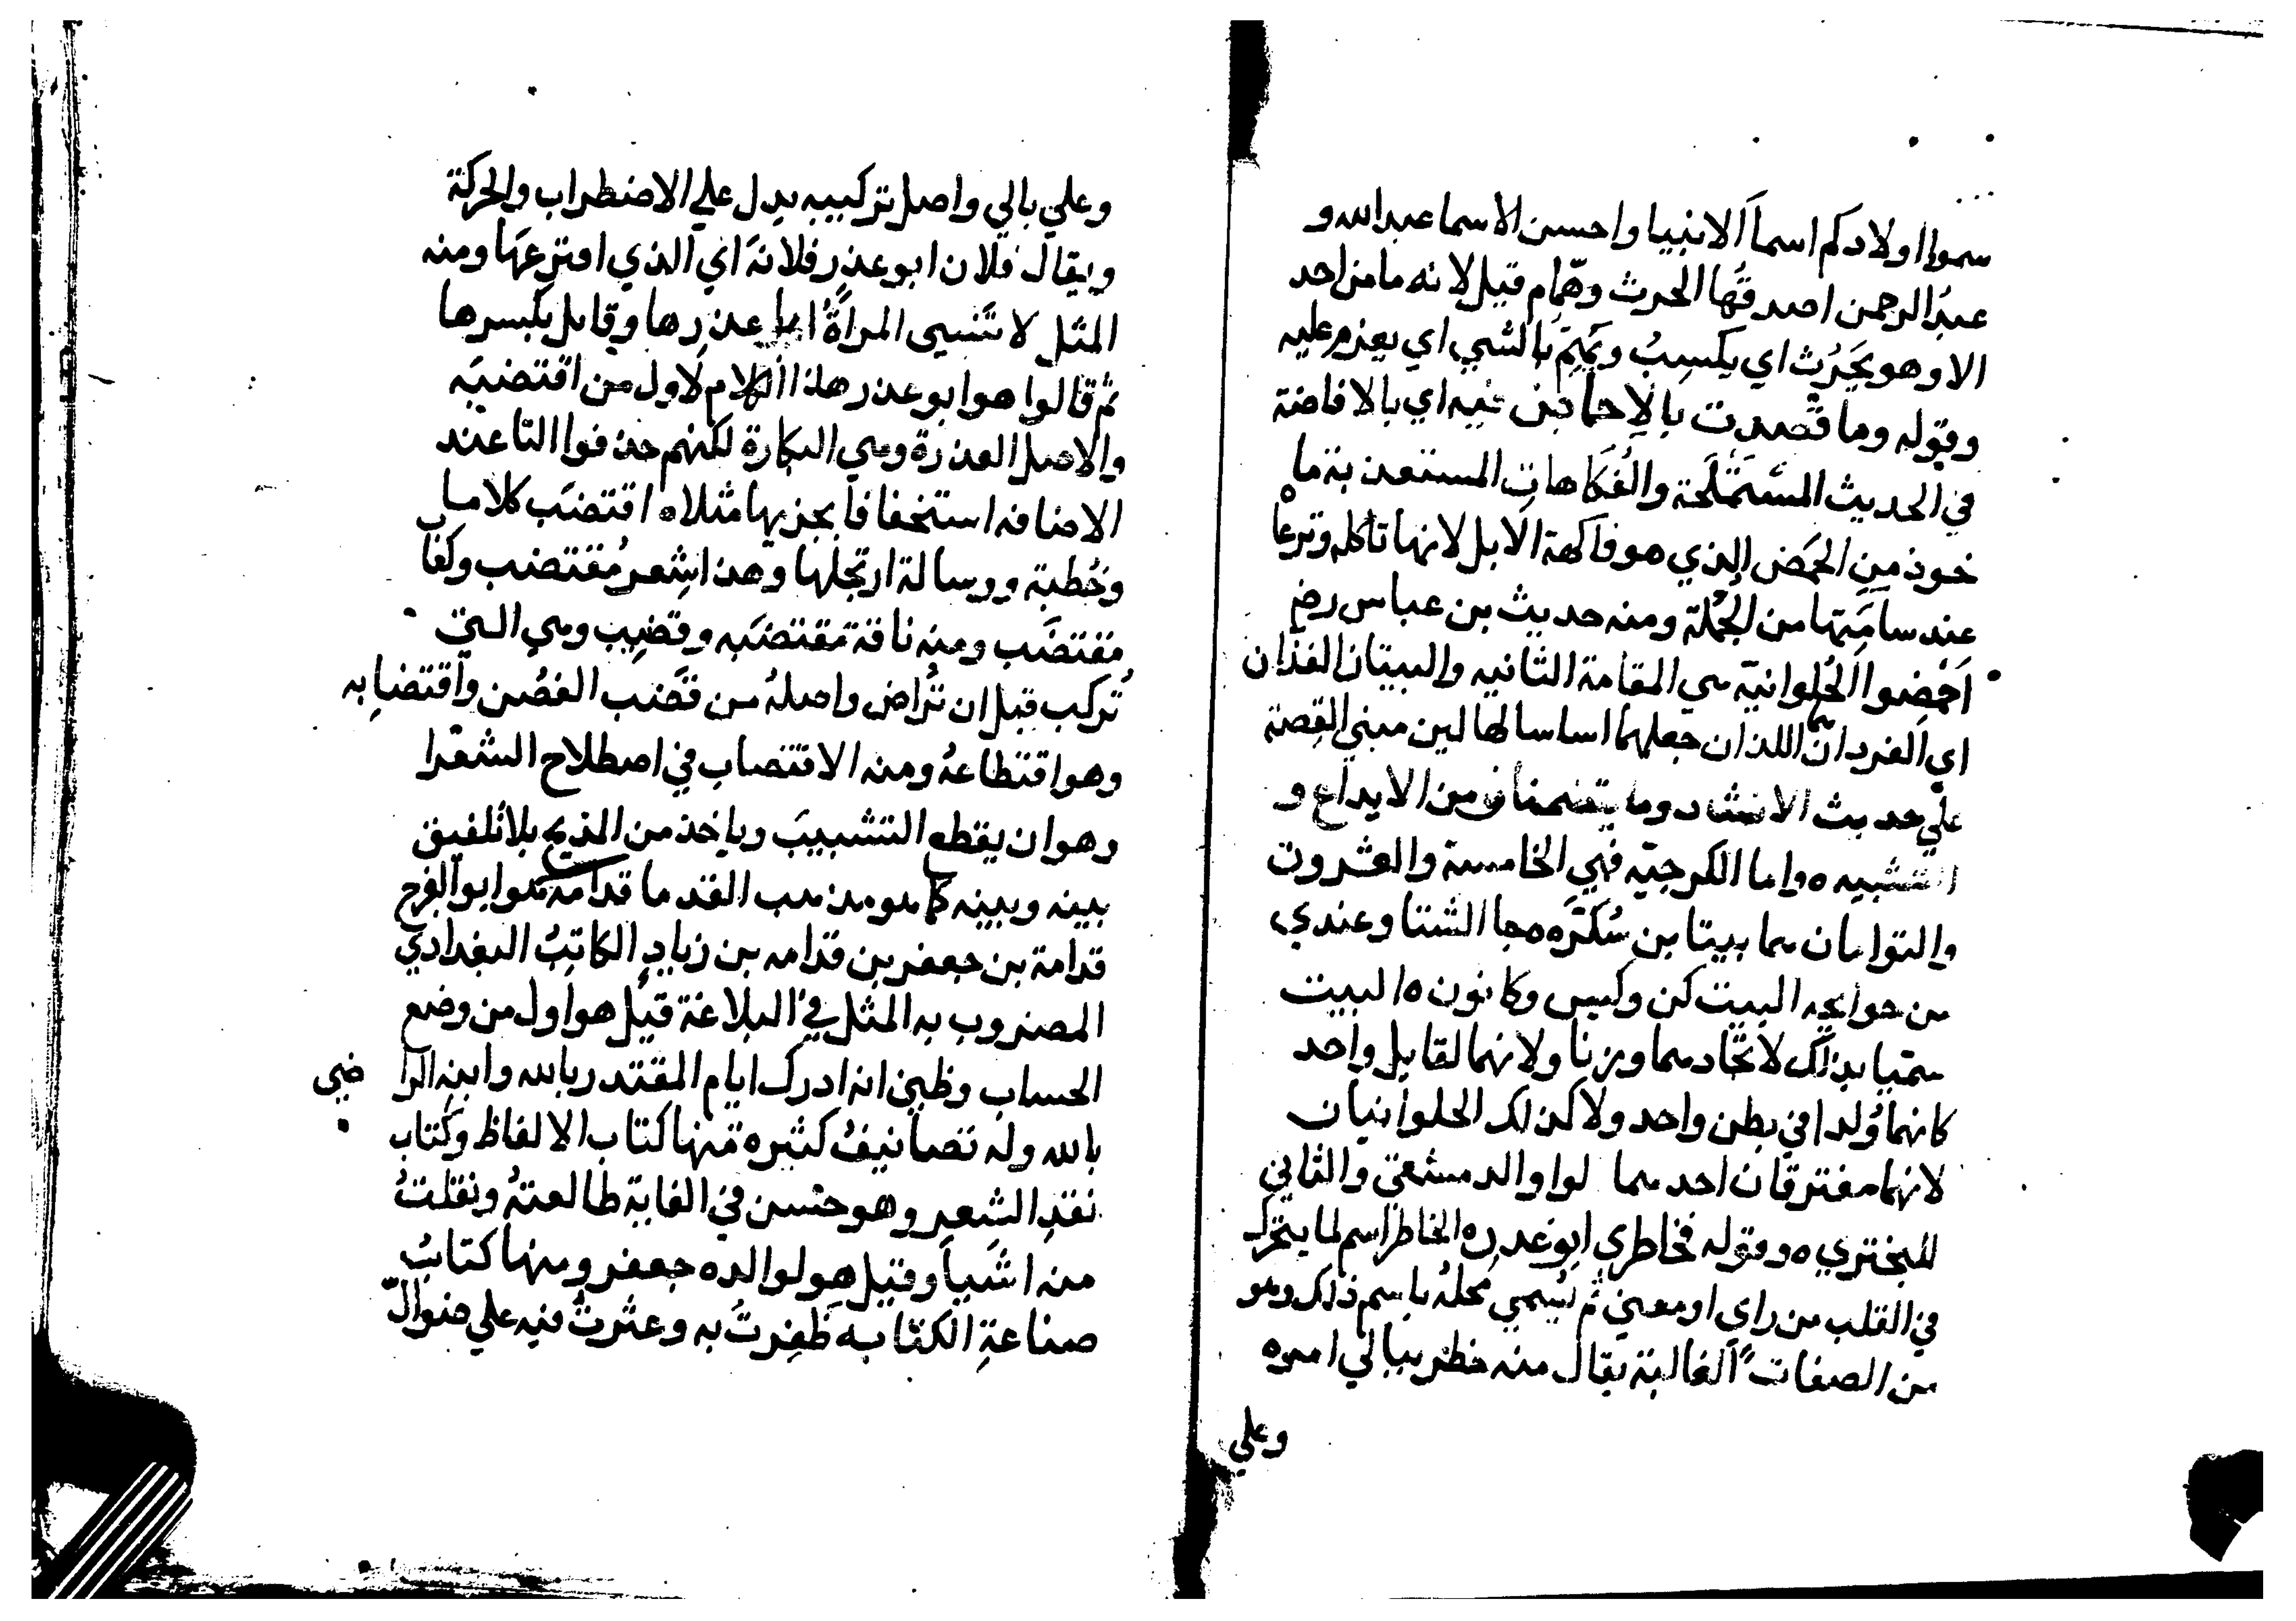 سموا اولادكم اسمآ الانبيا واحسن الاسما عبد الله و
عبدُ الرحمن اصدقُها الحرث وهّمام قيل لانه ما من احد
الا وهو يَحرُث اي يكسِبُ ويَهتم بالشي اي يعزم عليه
وقوله وما قصدت بالاحماض فيه اي بالافاضة
في الحديث المستملَحة والفُكاهات المستعذبة ما
خوذ من الحَمض الذي هو فاكهة الابل لانها تاكله وترعاه
عند سآمتها من الخُلّة ومنه حديث بن عباس رضي
اَحمِضوا الحُلوانيّه هي المقامة الثانيه والبيتان الفذان
اي الفردان هما اللذان جعلهما اساسا لها لين مبني القصة
علي حديث الانشاد وما يتضمنان من الايداع و
التشبيه ه واما الكرجيّه فهي الخامسة والعشرون
والتوامان هما بيتا بن سُكّرَه ه جا الشتا وعندي
من حوايجه البيت كن وكيس وكانون ه البيت
سمّيا بذلك لاتحادهما وزنا ولانهما لقايل واحد
كانهما وُلدا في بطن واحد ولا كذلك الحلوانيان
لانهما مفترقان احدهما لواوا الدمشقي والثاني
للبختري ه وقوله فخاطري ابو عذره ه الخاطر اسم لما يتحرك
في القلب من راي او معني ثم يُسمي محلهُ باسم ذلك وهو
من الصفات الغالبة يقال منه خطر ببالي امره
وعلي
وعلي بالي واصل تركيبه يدل علي الاضطراب والحركة
ويقال فلان ابو عذر فلانهَ اي الذي افترعَها ومنه
المثل لا تَنسي المراةُ ابا عذرها وقاتل بكسرها
ثم قالوا هو ابو عذر هذا الكلام لاول من اقتضبَه
والاصل العذرة وهي البكارة لكنهم حذفوا التا عند
الاضافه استخفافا بجزيها مثلا ه اقتضَب كلاما
وخُطبة ورسالة ارتجلها وهذا شِعر مُقتضب وكتاب
مقتضَب ومنه ناقة مقتضَبه وقضِيب وهي التي
تُركب قبل ان تُراض واصلهُ من قَضب الغصُن واقتضابه
وهو اقتطاعهُ ومنه الاقتضاب في اصطلاح الشعرا
وهو ان يقطع التشبيبَ وياخذ من المديح بلا تلفيق
بينه وبينه كما هو مذهب القدما قدامة هو ابو الفرج
قدامة بن جعفر بن قدامه بن زيادٍ الكاتبُ البغدادي
المضروب به المثل في البلاغة قيل هو اول من وضع
الحساب وظني انه ادرك ايام المقتدر بالله وابنه الراضي
بالله وله تصانيفُ كثيره منها كتاب الالفاظ وكتاب
نقدِ الشعرِ وهو حسن في الغاية طالعتهُ ونقلتُ
منه اشيآ وقيل هو لوالده جعفر ومنها كتابُ
صناعةِ الكتابه ظَفِرتُ به وعثرتُ فيه علي ضوالّ